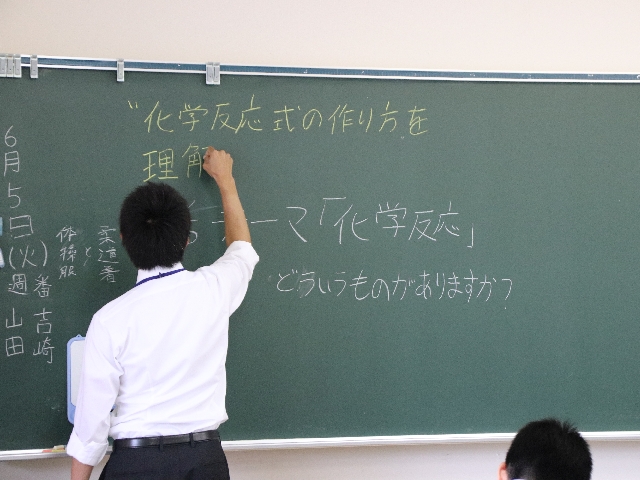 〝化学反応式の作り方を
理解
テーマ「化学反応」
どういうものがありますか?
柔道着
と
体操服
6月5日(火)
番 吉崎
週 山田